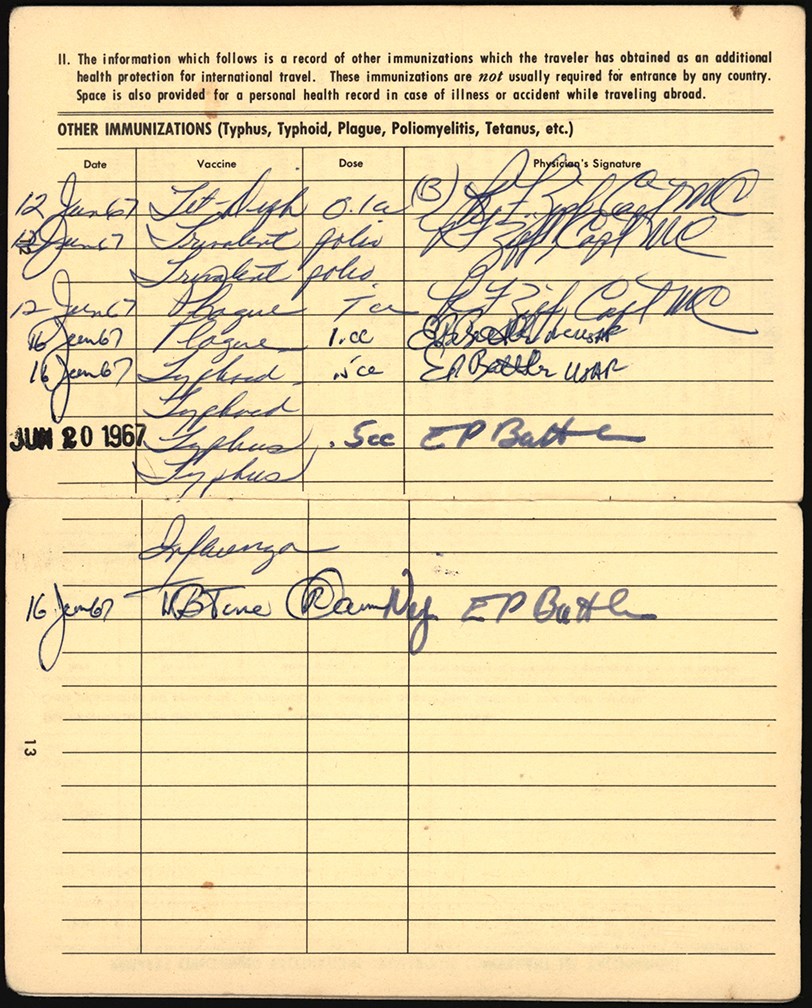 II. The information which follows is a record of other immunizations which the traveler has obtained as an additional
health protection for international travel. These immunizations are not usually required for entrance by any country.
Space is also provided for a personal health record in case of illness or accident while traveling abroad.
OTHER IMMUNIZATIONS (Typhus, Typhoid, Plague, Poliomyelitis, Tetanus, etc.)
Date Vaccine Dose Physician's Signature
12 Jun 67 Tet-Diph 0.1cc (B) Capt MC
12 Jun 67 Trivalent polio Capt MC
Trivalent polio
12 Jun 67 Plague Capt MC
16 Jun 67 Plague 1.cc EP Battle USAR
16 Jun 67 Typhoid .5cc EP Battle USAR
Typhoid
JUN 20 1967 Typhus .5cc EP Battle
Typhus
Influenza
16 Jun 67 TB Tine Neg EP Battle
13